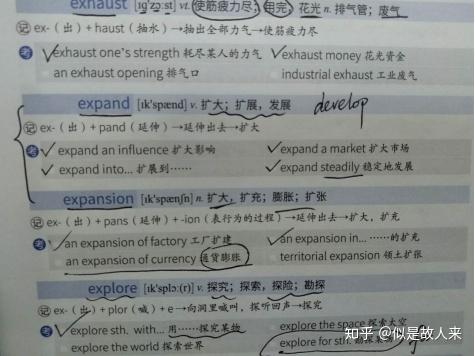 exhaust [ɪg'zɔːst] vt. 使筋疲力尽；用完；花光 n. 排气管；废气
记 ex-（出）+ haust（抽水）→抽出全部力气→使筋疲力尽
考 exhaust one's strength 耗尽某人的力气 exhaust money 花光资金
an exhaust opening 排气口 industrial exhaust 工业废气
expand [ɪk'spænd] v. 扩大；扩展，发展 develop
记 ex-（出）+ pand（延伸）→延伸出去→扩大
考 expand an influence 扩大影响 expand a market 扩大市场
expand into... 扩展到…… expand steadily 稳定地发展
expansion [ɪk'spænʃn] n. 扩大，扩充；膨胀；扩张
记 ex-（出）+ pans（延伸）+ -ion（表行为的过程）→延伸出去→扩大，扩充
考 an expansion of factory 工厂扩建 an expansion in... ……的扩充
an expansion of currency 通货膨胀 territorial expansion 领土扩张
explore [ɪk'splɔː(r)] v. 探究；探索，探险；勘探
记 ex-（出）+ plor（喊）+ e→向洞里喊叫，探听回声→探究
考 explore sth. with... 用……探究某物 explore the space 探索太空
explore the world 探索世界 explore for sth.
知乎 @似是故人来